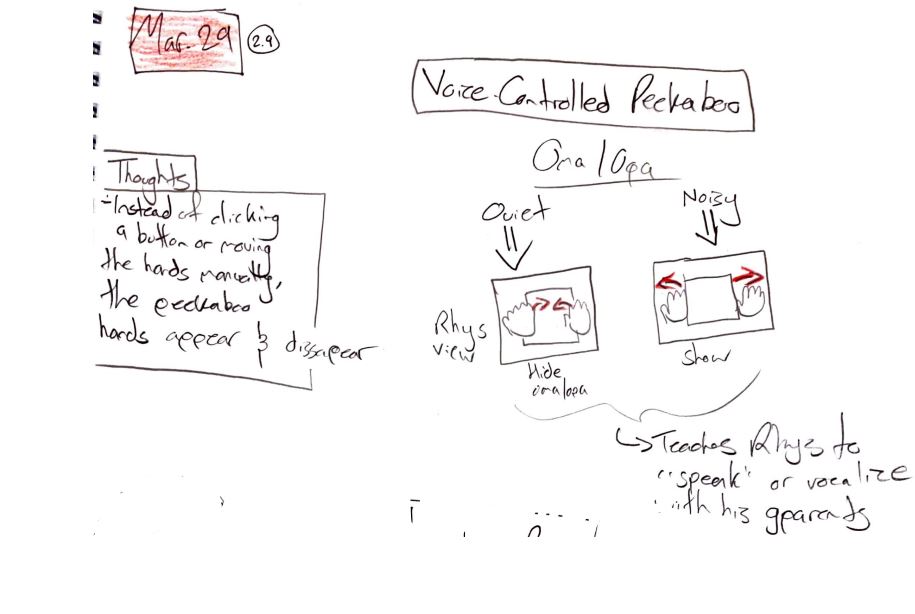 Mar. 29
2.9
Voice-Controlled Peekaboo
Oma/Opa
Thoughts
- Instead of clicking
a button or moving
the hands manually,
the peekaboo
hands appear & dissapear
Quiet
Noisy
Rhys
view
Hide
oma/opa
Show
Teaches Rhys to
"speak" or vocalize
with his gparents